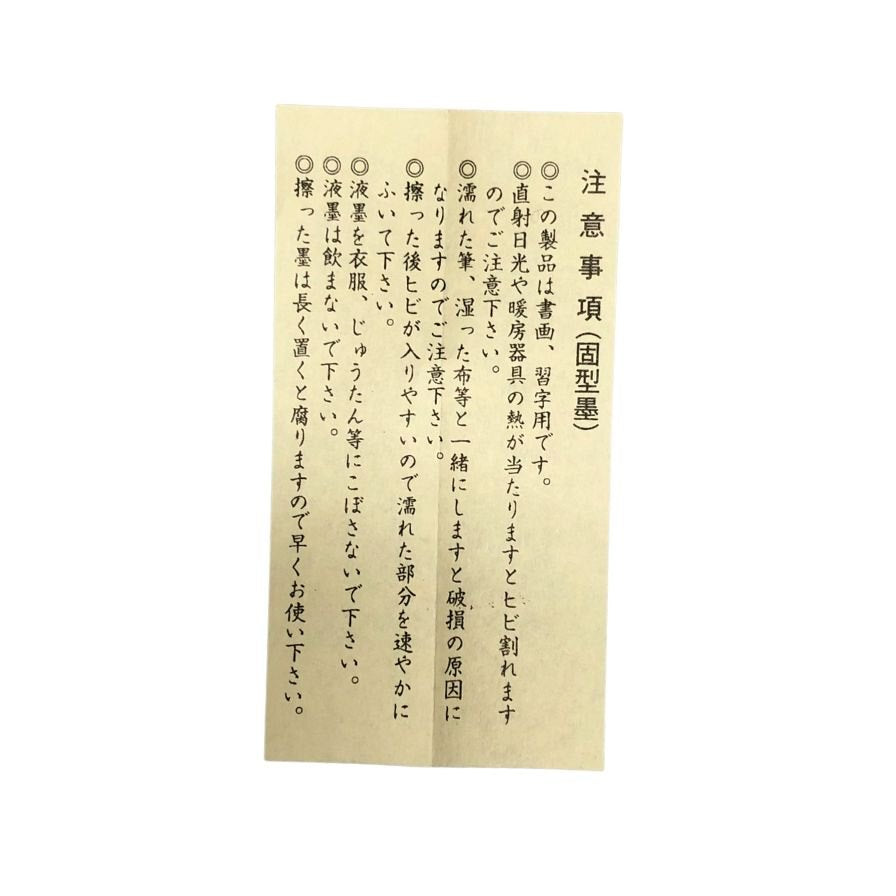 注意事項(固型墨)
◎この製品は書画、習字用です。
◎直射日光や暖房器具の熱が当たりますとヒビ割れます
のでご注意下さい。
◎濡れた筆、湿った布等と一緒にしますと破損の原因に
なりますのでご注意下さい。
◎擦った後ヒビが入りやすいので濡れた部分を速やかに
ふいて下さい。
◎液墨を衣服、じゅうたん等にこぼさないで下さい。
◎液墨は飲まないで下さい。
◎擦った墨は長く置くと腐りますので早くお使い下さい。